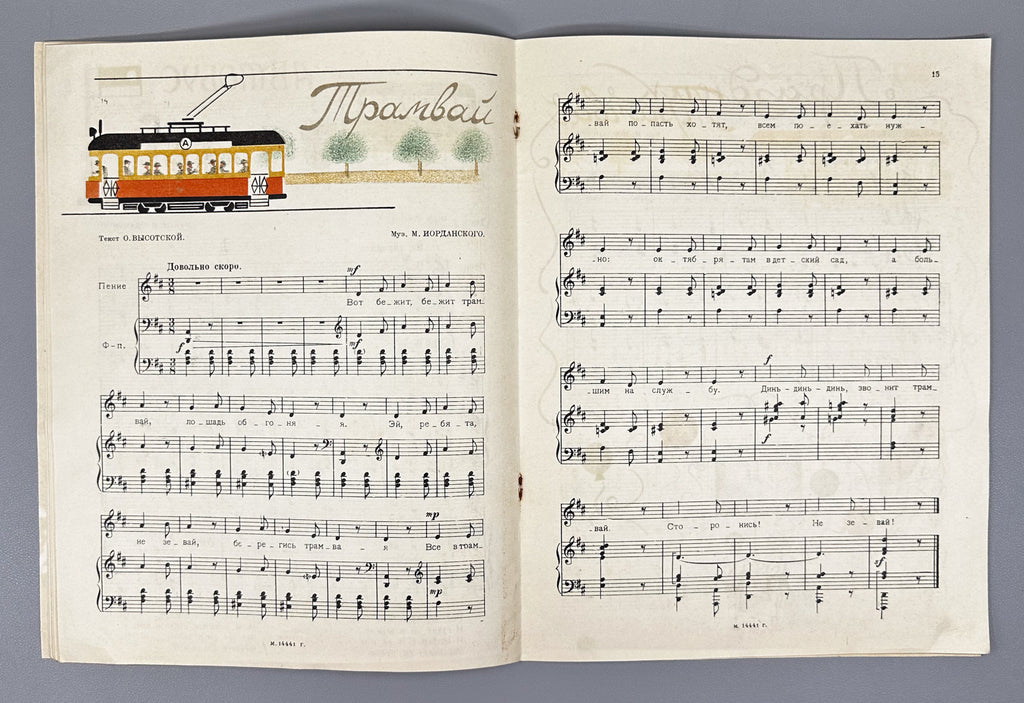 14
Трамвай
А
Текст О. ВЫСОТСКОЙ.
Муз. М. ИОРДАНСКОГО.
Довольно скоро.
mf
Пение
3 8
Вот бе_жит, бе_жит трам_
Ф-п.
3 8
f
mf
3 8
_вай, ло_шадь об_го_ня_я. Эй, ре_бя_та,
mp
не зе_вай, бе_ре_гись трам_ва_я Все в трам_
mp
м. 14441 г.
15
_вай по_пасть хо_тят, всем по_е_хать нуж_
_но: ок_тяб_ря_там в дет_ский сад, а боль_
f
_шим на служ_бу. Динь-динь-динь, зво_нит трам_
f
_вай. Сто_ро_нись! Не зе_вай!
sf
м. 14441 г.